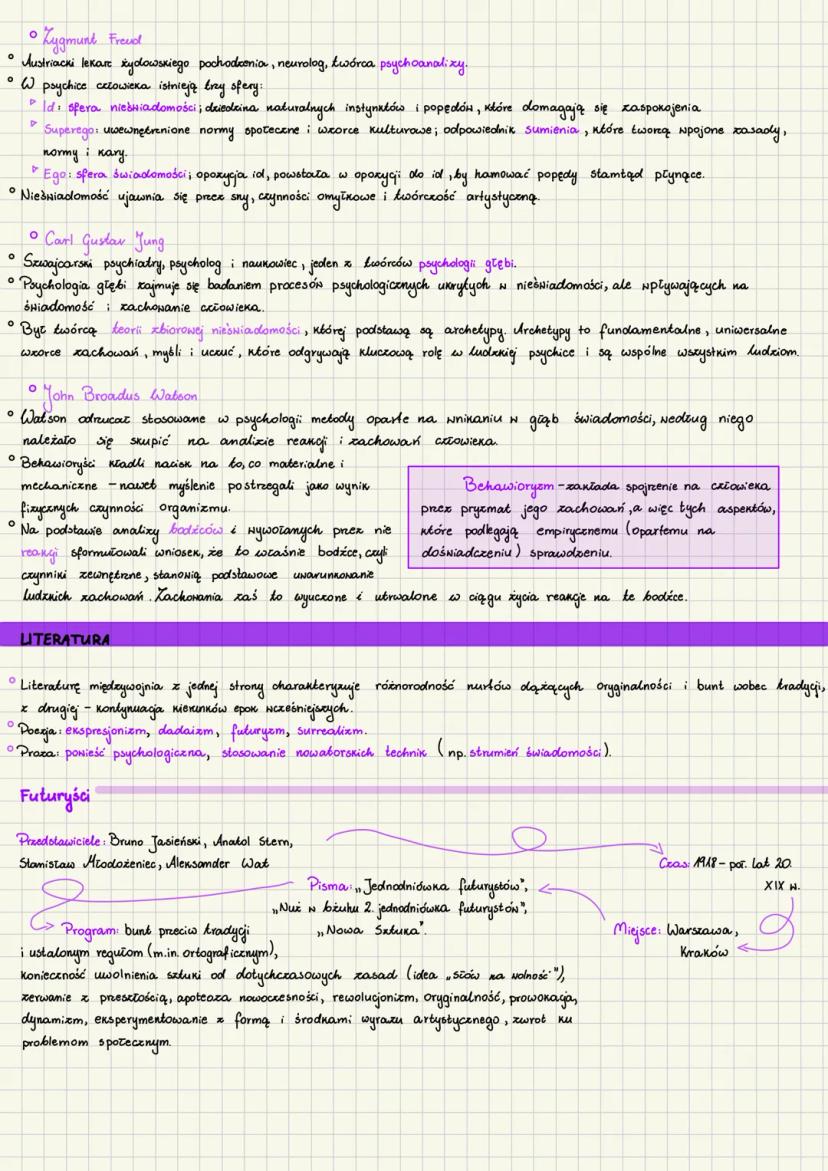 Zygmunt Freud
Austriacki lekarz żydowskiego pochodzenia, neurolog, twórca psychoanalizy.
W psychice człowieka istnieją trzy sfery:
Id: sfera nieświadomości; dziedzina naturalnych instynktów i popędów, które domagają się zaspokojenia
Superego: uwewnętrznione normy społeczne i wzorce kulturowe; odpowiednik sumienia, które tworzą wpojone zasady,
normy i kary.
Ego: sfera świadomości; opozycja id, powstała w opozycji do id, by hamować popędy stamtąd płynące.
Nieświadomość ujawnia się przez sny, czynności omyłkowe i twórczość artystyczną.
Carl Gustav Jung
Szwajcarski psychiatry, psycholog i naukowiec, jeden z twórców psychologii głębi.
Psychologia głębi zajmuje się badaniem procesów psychologicznych ukrytych w nieświadomości, ale wpływających na
świadomość i zachowanie człowieka.
Był twórcą teorii zbiorowej nieświadomości, której podstawą są archetypy. Archetypy to fundamentalne, uniwersalne
wzorce zachowań, myśli i uczuć, które odgrywają kluczową rolę w ludzkiej psychice i są wspólne wszystkim ludziom.
John Broadus Watson
Watson odrzucał stosowane w psychologii metody oparte na wnikaniu w głąb świadomości, według niego
należało się skupić na analizie reakcji i zachowań człowieka.
Behawioryści kładli nacisk na to, co materialne i
mechaniczne – nawet myślenie postrzegali jako wynik
fizycznych czynności organizmu.
Na podstawie analizy bodźców i wywołanych przez nie
reakcji sformułowali wniosek, że to właśnie bodźce, czyli
czynniki zewnętrzne, stanowią podstawowe uwarunkowanie
ludzkich zachowań. Zachowania zaś to wyuczone i utrwalone w ciągu życia reakcje na te bodźce.
Behawioryzm – zakłada spojrzenie na człowieka
przez pryzmat jego zachowań, a więc tych aspektów,
które podlegają empirycznemu (opartemu na
doświadczeniu) sprawdzeniu.
LITERATURA
Literaturę międzywojnia z jednej strony charakteryzuje różnorodność nurtów dążących oryginalności i bunt wobec tradycji,
z drugiej – kontynuacja kierunków epok wcześniejszych.
Poezja: ekspresjonizm, dadaizm, futuryzm, surrealizm.
Proza: powieść psychologiczna, stosowanie nowatorskich technik (np. strumień świadomości).
Futuryści
Przedstawiciele: Bruno Jasieński, Anatol Stern,
Stanisław Młodożeniec, Aleksander Wat
Czas: 1918 – poł. lat 20.
XIX w.
Miejsce: Warszawa,
Kraków
Pisma: „Jednodniówka futurystów",
„Nuż w bżuhu 2. jednodniówka futurystów",
„Nowa Sztuka".
Program: bunt przeciw tradycji
i ustalonym regułom (m.in. ortograficznym),
konieczność uwolnienia sztuki od dotychczasowych zasad (idea „słów na wolność"),
zerwanie z przeszłością, apoteoza nowoczesności, rewolucjonizm, oryginalność, prowokacja,
dynamizm, eksperymentowanie z formą i środkami wyrazu artystycznego, zwrot ku
problemom społecznym.